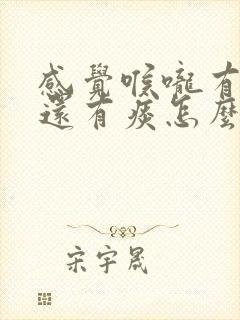 感覺喉嚨有
還有痰怎麼
宋宇晟